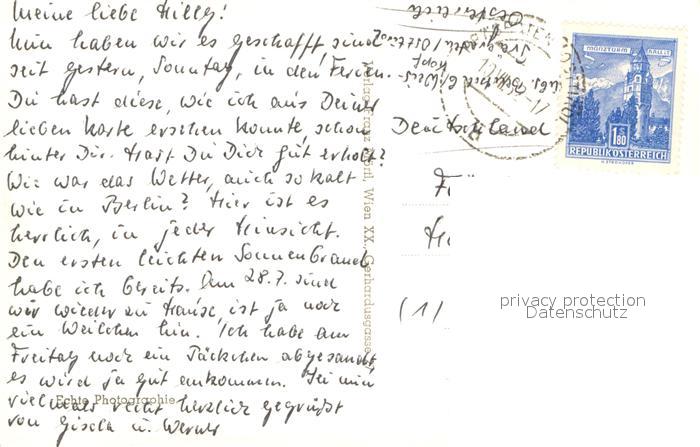 Meine liebe Milly!
Nun haben wir es geschafft, sind
seit gestern, Sonntag, in den Ferien.
Du hast diese, wie ich aus Deiner
lieben Karte ersehen konnte, schon
hinter Dir. Hast Du Dich gut erholt?
Wie war das Wetter, auch so kalt
wie in Berlin? Hier ist es
herrlich, in jeder Hinsicht.
Den ersten leichten Sonnenbrand
habe ich bereits. Am 28.7. sind
wir wieder zu Hause, ist ja noch
ein Weilchen hin. Ich habe am
Freitag noch ein Päckchen abgesandt,
es wird ja gut ankommen. Sei nun
vielmals recht herzlich gegrüßt
von Gisela u. Werner
Echte Photographie
Wien XX, Gerhardusgasse
Oesterreich
Deutschland
(1)
MÜNZTURM HALL I.T.
S 1.80
REPUBLIK ÖSTERREICH
privacy protection
Datenschutz